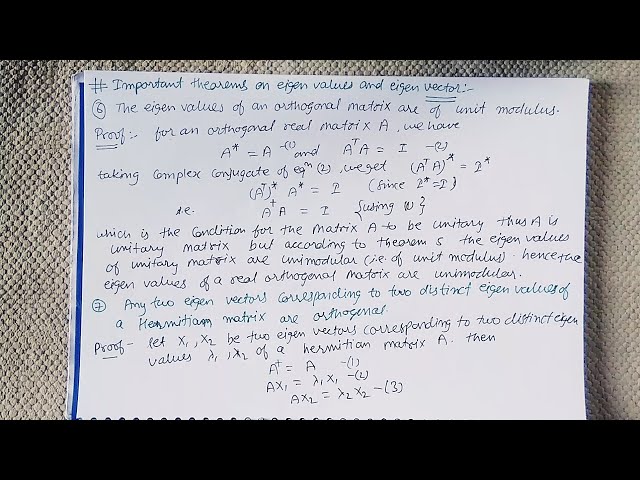 # Important theorems on eigen values and eigen vector:-
⑥ The eigen values of an orthogonal matrix are of unit modulus.
Proof:- for an orthogonal real matrix A, we have
A* = A -(1) and AᵀA = I -(2)
taking complex conjugate of eqⁿ (2), we get (AᵀA)* = I*
(Aᵀ)* A* = I (since I* = I)
i.e. A†A = I {using (1)}
which is the condition for the matrix A to be unitary thus A is
unitary matrix but according to theorem 5 the eigen values
of unitary matrix are unimodular (i.e. of unit modulus). hence the
eigen values of a real orthogonal matrix are unimodular.
⑦ Any two eigen vectors corresponding to two distinct eigen values of
a Hermitian matrix are orthogonal.
Proof- let X₁, X₂ be two eigen vectors corresponding to two distinct eigen
values λ₁, λ₂ of a hermitian matrix A. then
A† = A -(1)
AX₁ = λ₁X₁ -(2)
AX₂ = λ₂X₂ -(3)